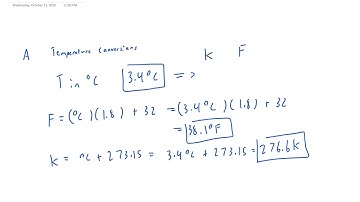 Wednesday, October 21, 2020 12:00 PM
A Temperature Conversions K F
T in °C 3.4°C =>
F = (°C)(1.8) + 32 = (3.4°C)(1.8) + 32
= 38.1°F
K = °C + 273.15 = 3.4°C + 273.15 = 276.6K